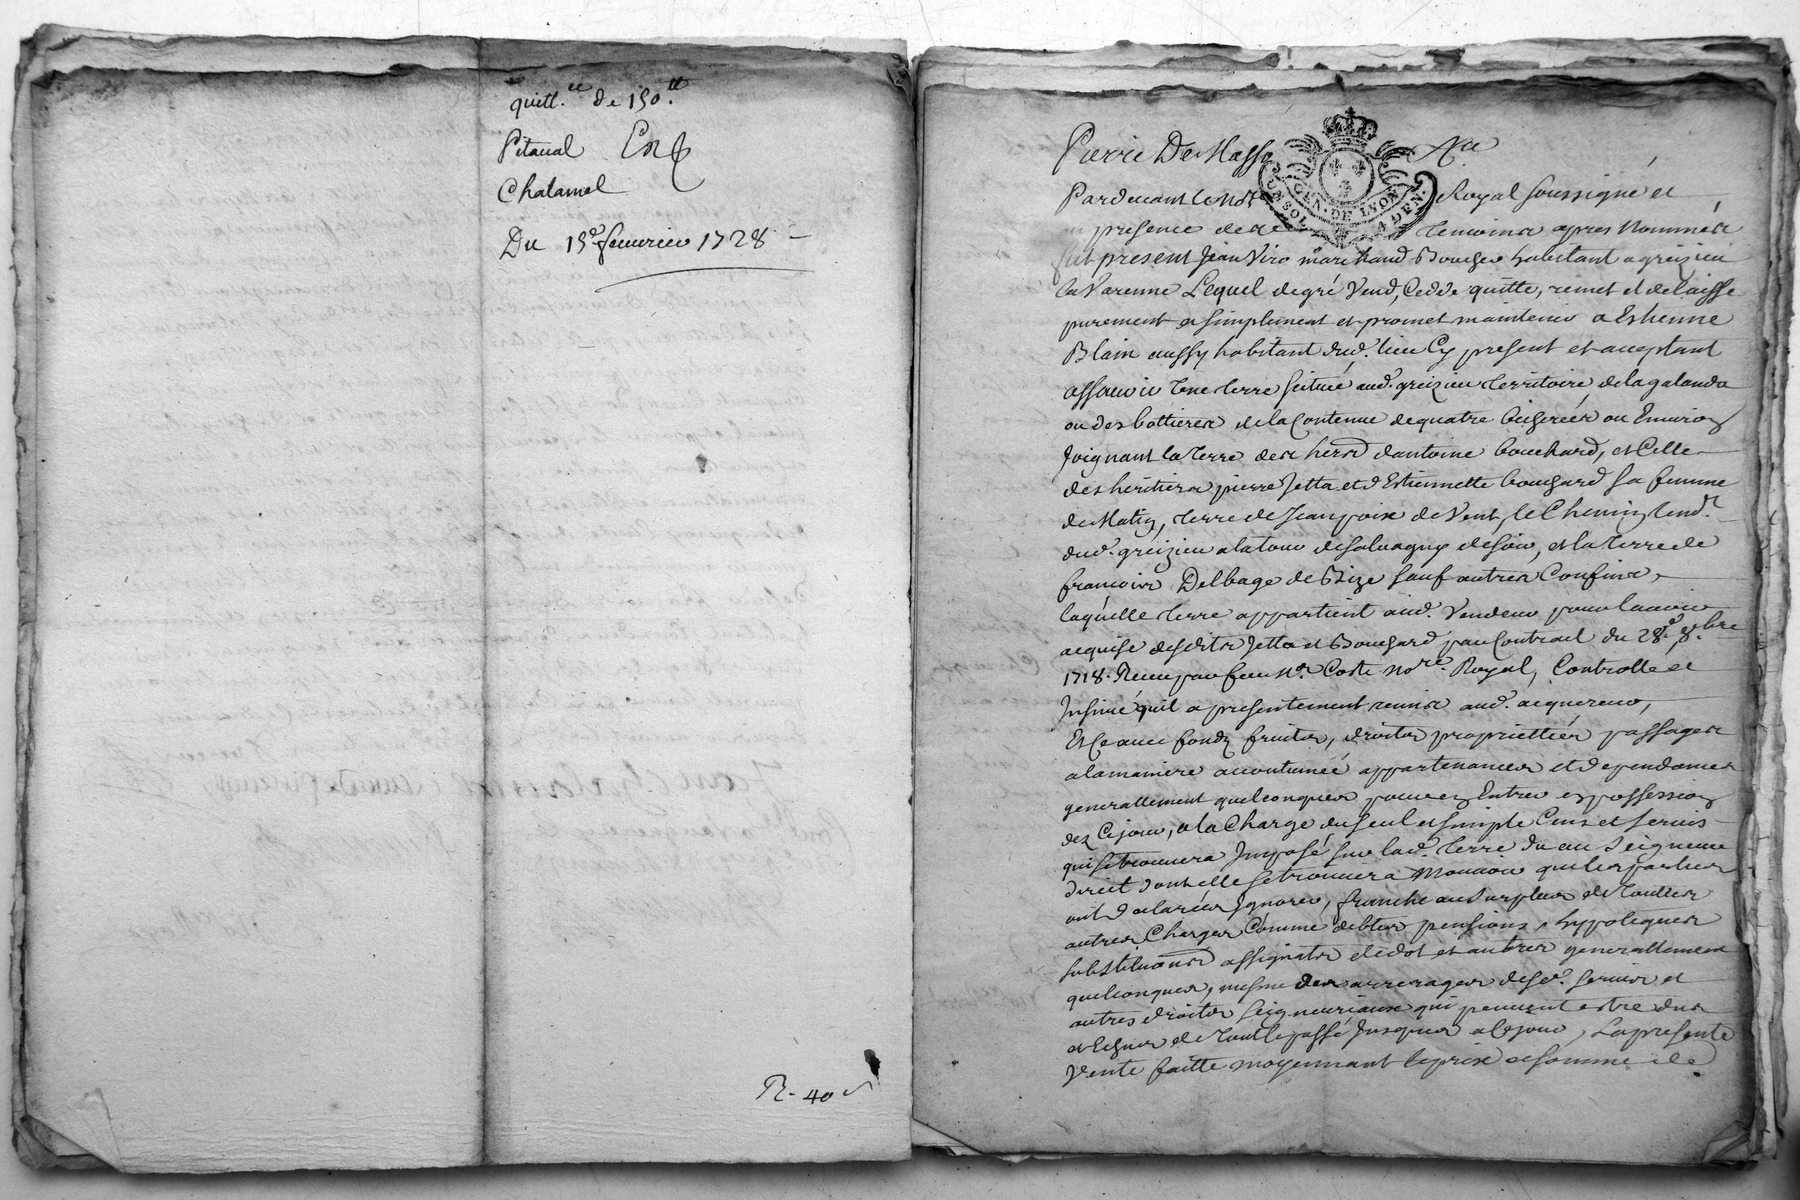 quitt.ce de 150.tt
Pitaval
Chalamel
Du 15.e fevurier 1728
R. 40 s
Pierre De Masso
GEN. DE LYON
Pardevant le No.re Royal soussigné et
presence des temoins apres Nommés
fut present Jean Viro marchand Boucher habitant a greizieu
la Varenne Lequel de gré Vend, Cedde quitte, remet et delaisse
purement et simplement et promet maintenir a Estienne
Blain aussy habitant dud. lieu Cy present et acceptant
assavoir Une terre scitué aud. greizieu territoire de la galande
ou des bottieres de la Contenue de quatre bicherées ou Environ
Joignant la terre des herrs d'antoine bouchard, et Celle
des heritiers pierre Jetta et d'Estiennette bouchard sa femme
de Matin, terre de Jean poix de Vent, le Chemin tend.t
dud. greizieu a la tour de salvagny de soir, et la terre de
francois Delbage de Bize sauf autres Confins,
laquelle terre appartient aud. Vendeur pour l'avoir
acquise desdits Jetta et Bouchard par Contract du 28.e 8.bre
1718. Receu par feu M.e Coste No.re Royal, Controllé et
Insinué qu'il a presentement remis aud. acquereur,
Et Ce avec fondz fruits, droits proprietties passages
a la maniere accoutumée appartenances et dependances
generallement quelconques pour en Entrer en possession
dez Ce jour, a la Charge du seul et simple Cens et servis
qui se trouvera Imposé sur lad. terre du au seigneur
direct dont elle se trouvera Mouvoir que les parties
ont declarées Ignorer, franche au surplus de Touttes
autres Charges Comme debtes pensions, hypoteques
substitutions assignats de dot et autres generallement
quelconques, mesme des arrerages desd. servis et
autres droits seigneuriaux qui peuvent estre dus
et Echus de Tout le passé Jusques a Ce jour, La presente
Vente faitte moyennant le prix et somme de